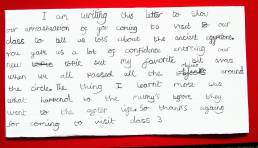 I am writing this letter to show
our appreciation of you coming to visit our
class to tell us lots about the ancient egyptians.
You gave us a lot of confidence entering our
new topic but my favorite bit was
when we all passed all the around
the circle. The thing I learnt most was
what happend to the mummy's before they
went to the after life. So thanks again
for coming to visit class 3